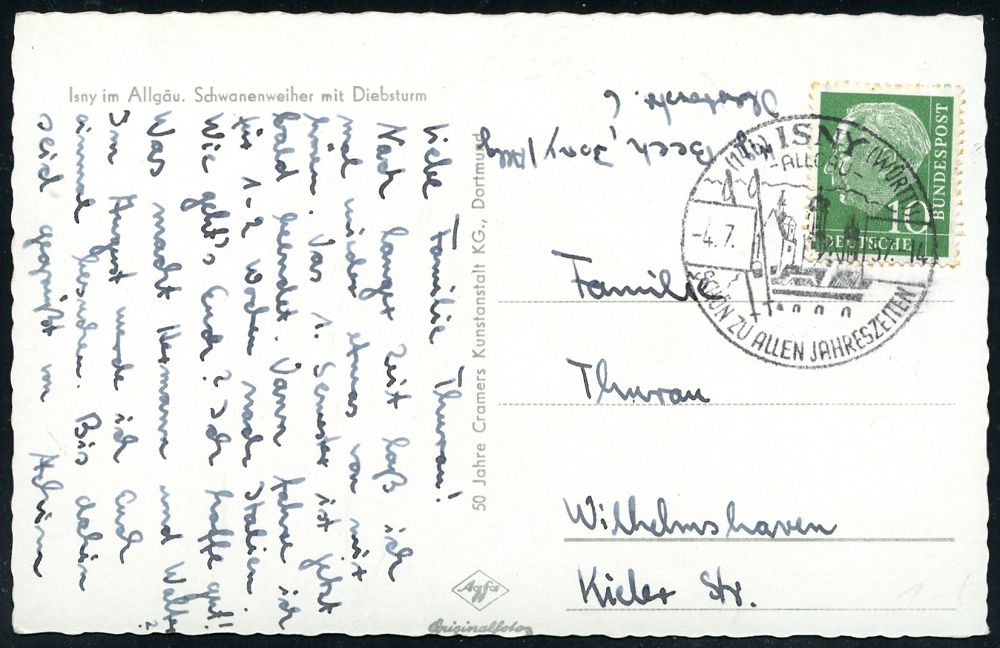 Isny im Allgäu. Schwanenweiher mit Diebsturm
Liebe Familie Thurau!
Nach langer Zeit laß ich
mal wieder etwas von mir
hören. Das 1. Semester ist jetzt
bald beendet. Dann fahre ich
für 1-2 Wochen nach Italien!
Wie geht's Euch? Ich hoffe gut!
Was macht Hermann und Walter?
Im August werde ich Euch
einmal besuchen. Bis dahin
seid gegrüßt von Achim
50 Jahre Cramers Kunstanstalt KG., Dortmund
Agfa
Originalfoto
Isny/Allg
6
ISNY
-ALLGÄU-
(WÜRTT)
-4.7.
57.-14
SCHÖN ZU ALLEN JAHRESZEITEN
10
DEUTSCHE
BUNDESPOST
Familie
Thurau
Wilhelmshaven
Kieler Str.